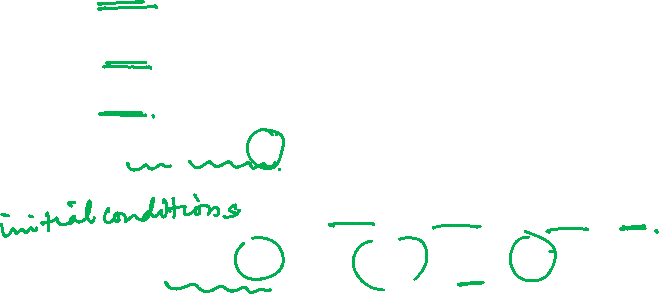 initial conditions